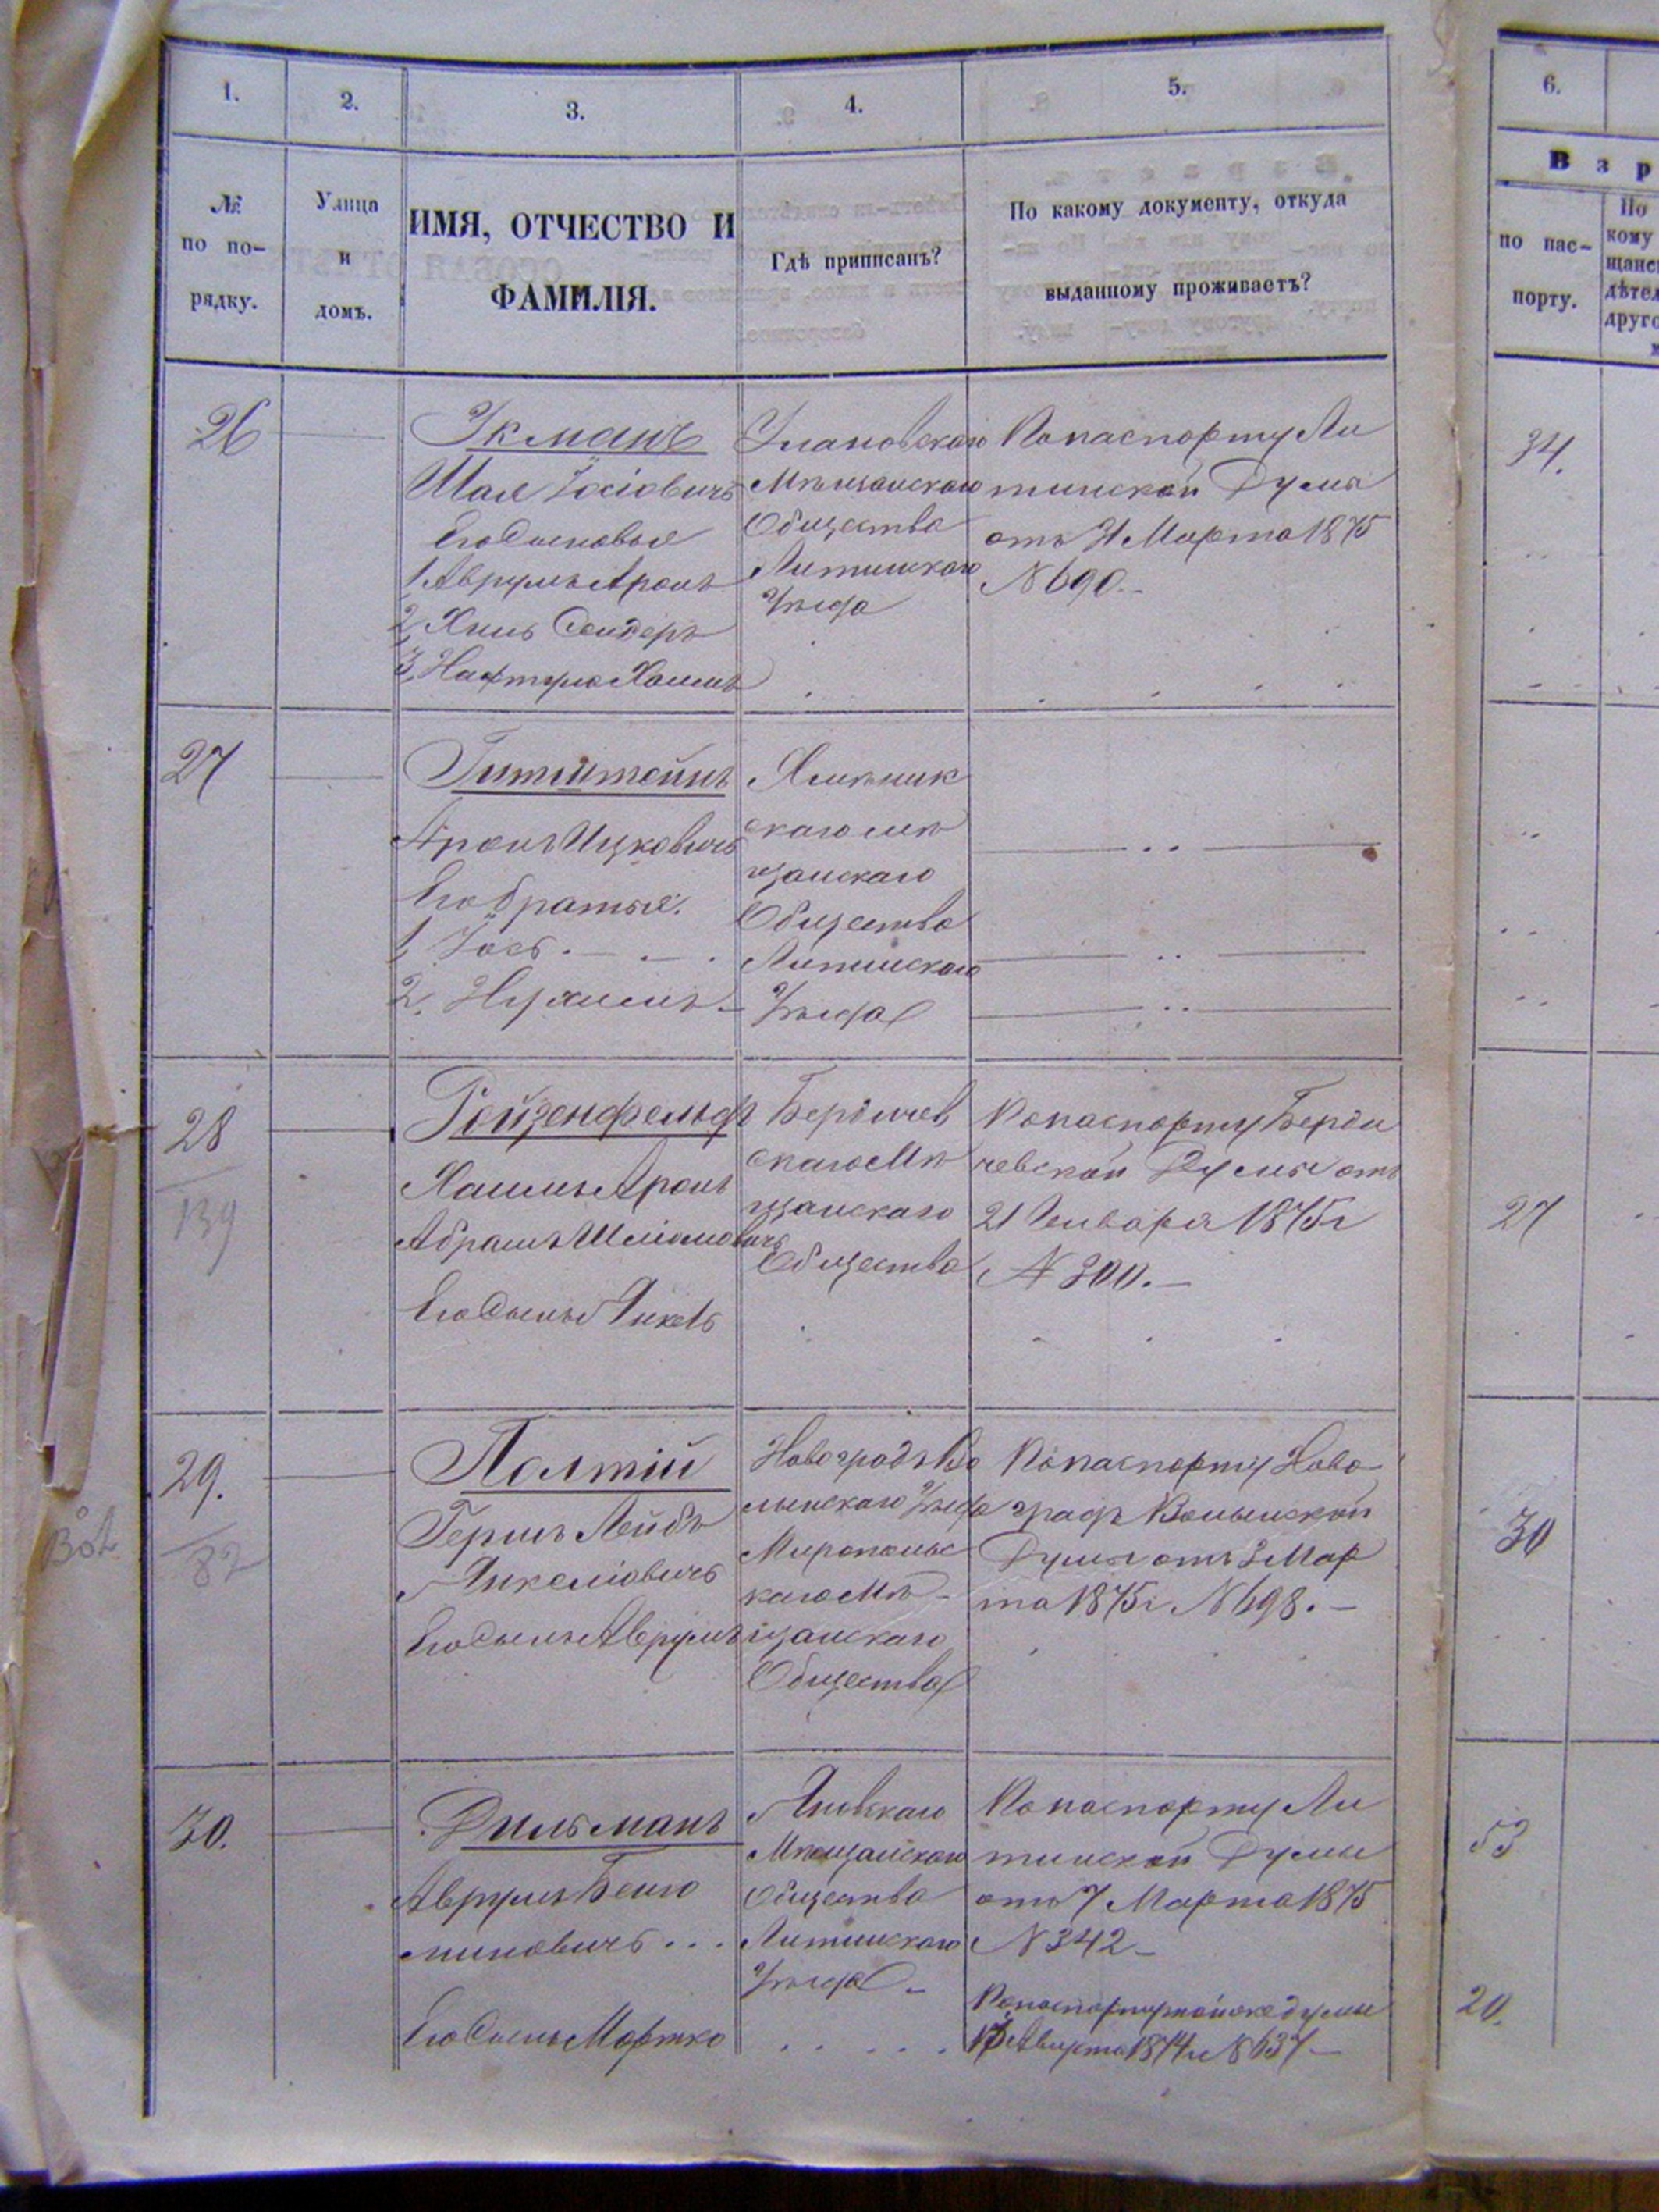 1.
2.
3.
4.
5.
6.
№
по по-
рядку.
Улица
и
домъ.
ИМЯ, ОТЧЕСТВО И
ФАМИЛІЯ.
Гдѣ приписанъ?
По какому документу, откуда
выданному проживаетъ?
В з р
по пас-
порту.
По
кому
щанс
дѣтел
друго
26
Экманъ
Шая Іосіовичъ
Его Сыновья
1, Аврумъ Аронъ
2, Хиль Сендеръ
3, Нафтула Хаимъ
Улановскаго
Мѣщанскаго
Общества
Литинскаго
Уѣзда
По паспорту Ли
тинской Думы
отъ Марта 1875
№ 690.-
34.
27
Гитштейнъ
Аронъ Ицковичъ
Его братья.
1, Іось
2, Нухимъ
Хмѣльник
скаго мѣ
щанскаго
Общества
Литинскаго
Уѣзда
28
139
Ройзенфельд
Хаимъ Аронъ
Абрамъ Шліомовичъ
Его Сынъ Янкель
Бердичев
скаго Мѣ
щанскаго
Общества
По паспорту Берди
чевской Думы отъ
21 Января 1875 г
№ 300.-
27
29.
82
Полтій
Гершъ Лейбъ
Янкеліовичъ
Его Сынъ Аврумъ
Новоградъ Во
лынскаго Уѣзда
Мирополъс
каго Мѣ-
щанскаго
Общества
По паспорту Ново-
град Волынской
Думы отъ 3 Мар
та 1875 г. № 698.-
30
30.
Дильманъ
Аврумъ Беню
миновичъ...
Его Сынъ Мортко
Яновскаго
Мѣщанскаго
Общества
Литинскаго
Уѣзда -
По паспорту Ли
тинской Думы
отъ 7 Марта 1875
№ 342-
По паспорту той же думы
Августа 1874 г № 637-
53
20.